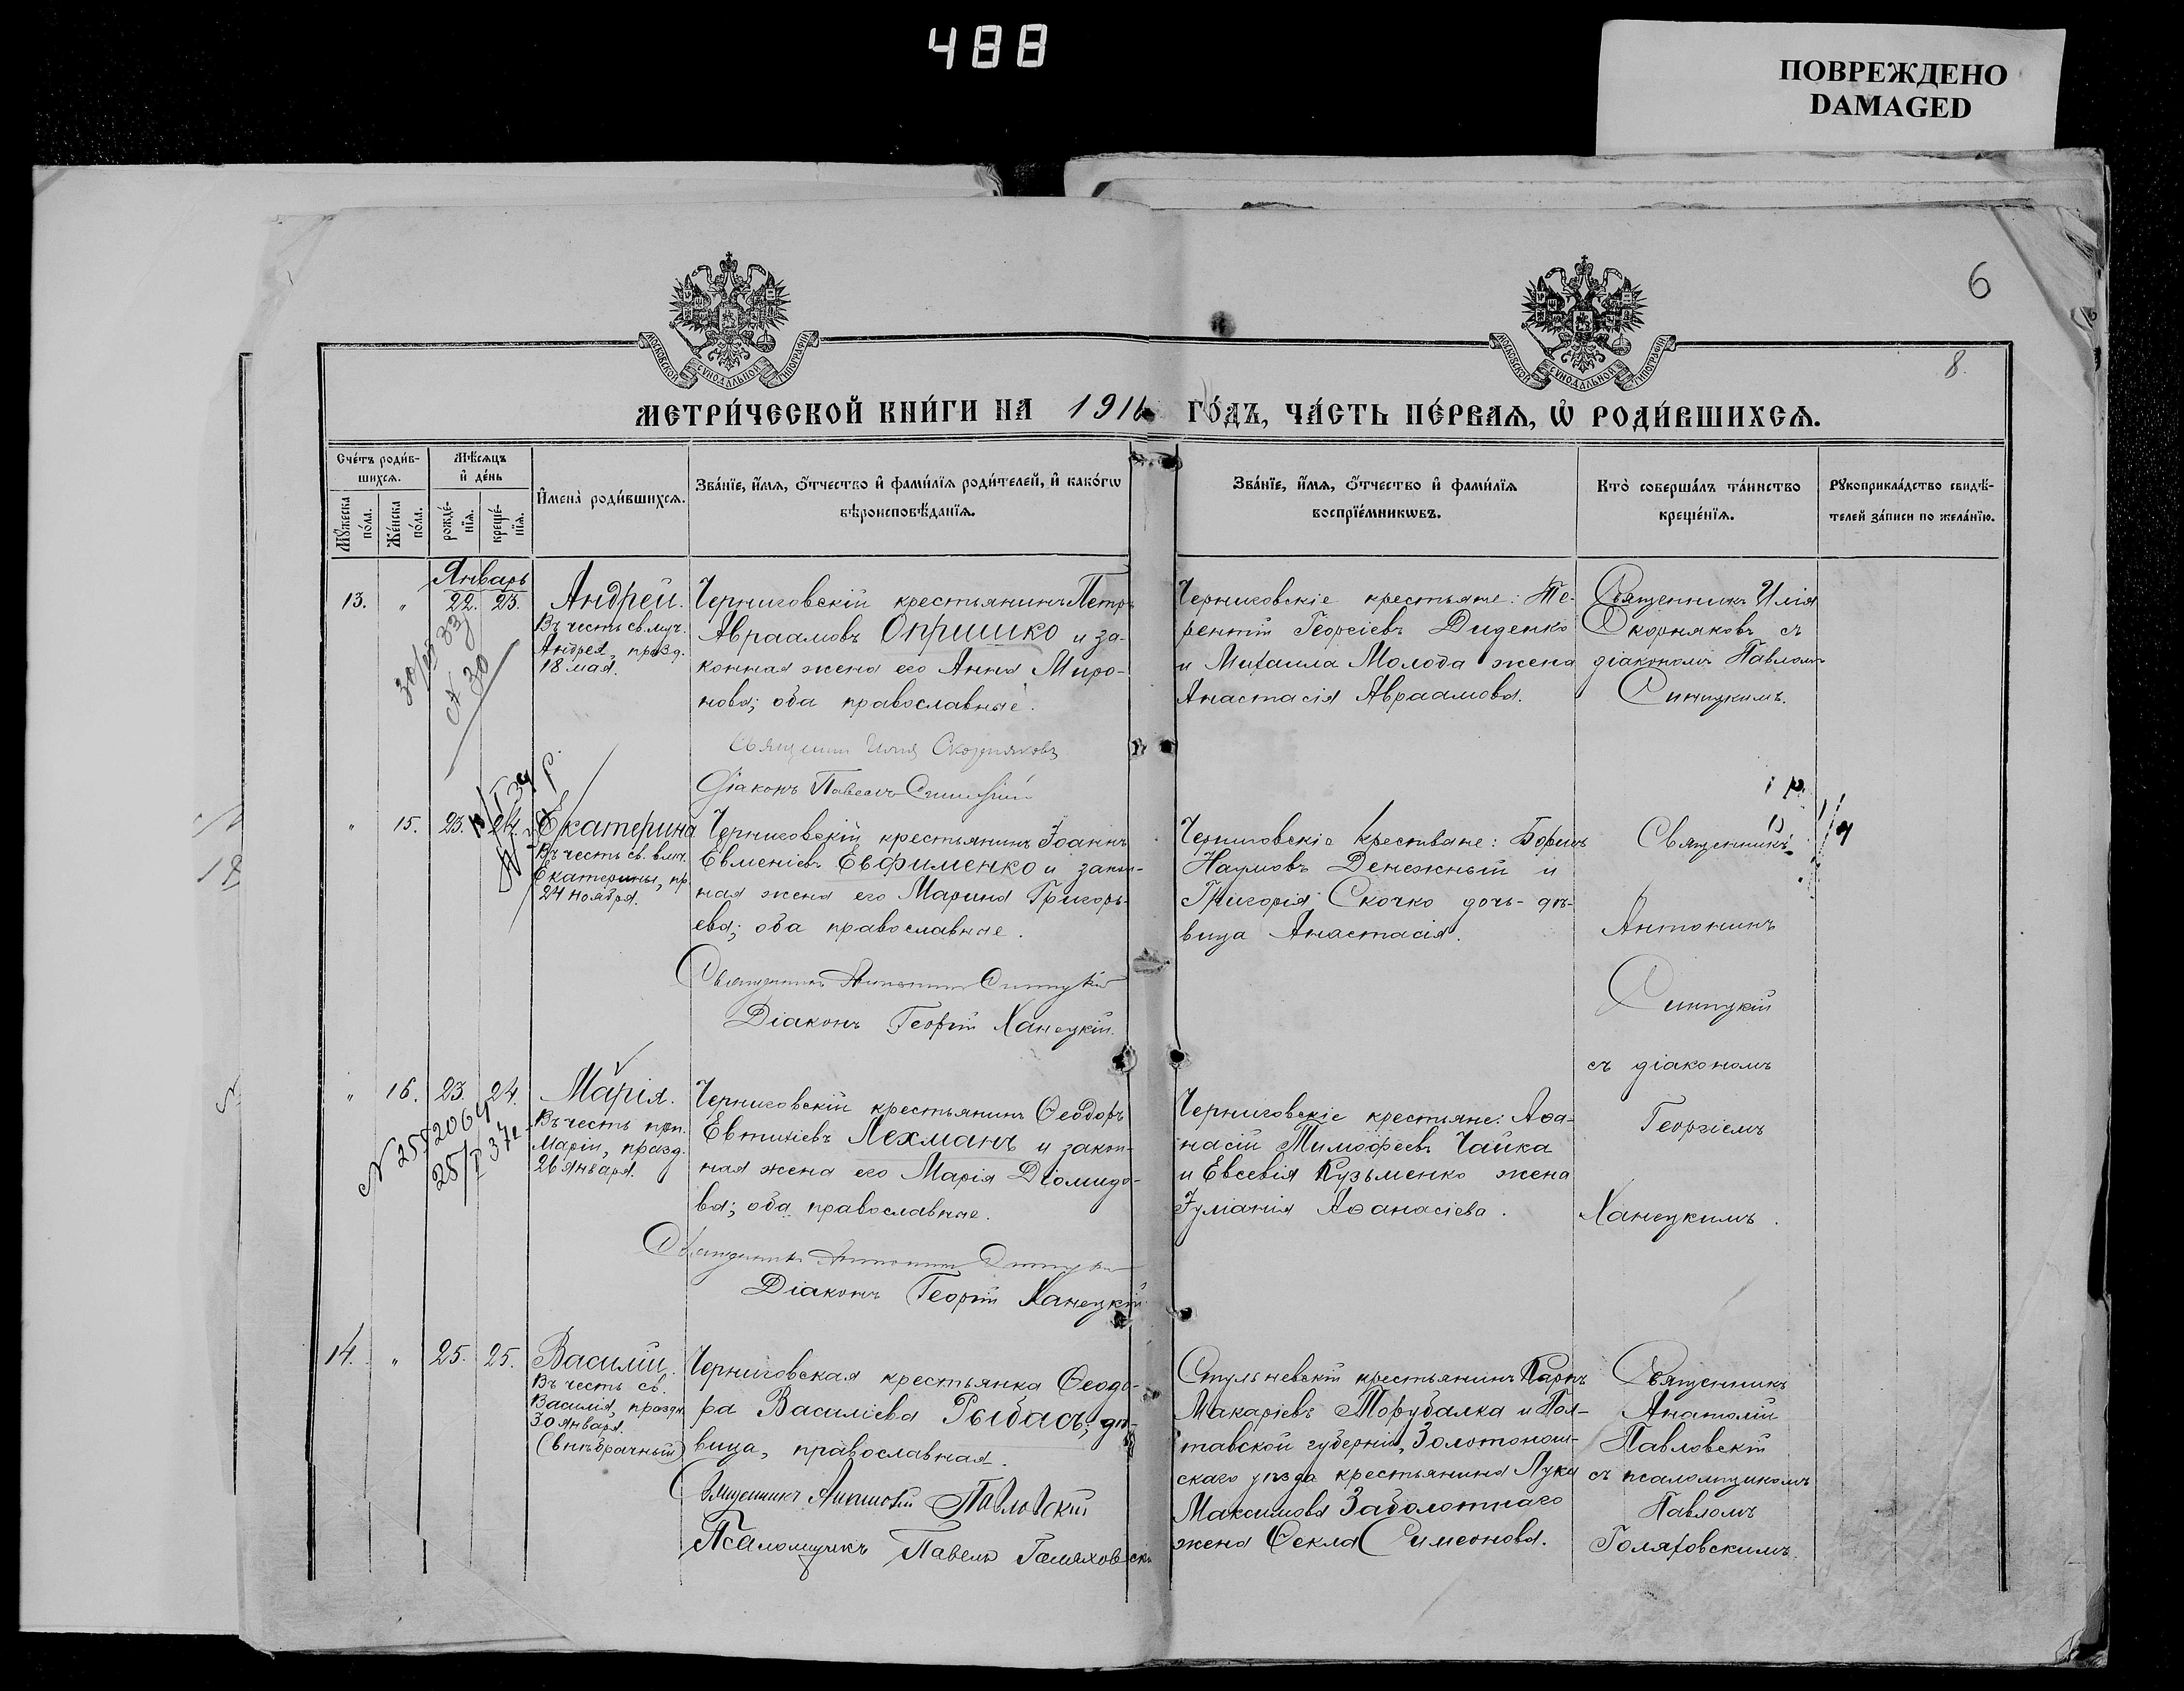 488
ПОВРЕЖДЕНО
DAMAGED
6
8.
МОСКОВСКОЙ СѴНОДАЛЬНОЙ ТИПОГРАФІИ
МОСКОВСКОЙ СѴНОДАЛЬНОЙ ТИПОГРАФІИ
МЕТРИ́ЧЕСКОЙ КНИ́ГИ НА 1916 ГО́ДЪ, ЧА́СТЬ ПЕ́РВАЯ, Ѡ РОДИ́ВШИХСЯ.
Сче́тъ роди́в-
шихся.
Мѣ́сяцъ
и де́нь
Му́жеска
по́ла.
Же́нска
по́ла.
рожде́-
нїя.
креще́-
нїя.
Имена̀ роди́вшихся.
Зва́нїе, и́мя, о́тчество и фами́лїя роди́телей, и како́гѡ
вѣроисповѣ́данїя.
Зва́нїе, и́мя, о́тчество и фами́лїя
воспрїе́мникѡвъ.
Кто̀ соверша́лъ та́инство
креще́нїя.
Рꙋкоприкла́дство свидѣ́-
телей за́писи по жела́нїю.
Январь
13. " 22. 23.
Андрей.
Въ честь св. муч.
Андрея, празд.
18 мая.
Черниговскій крестьянинъ Петръ
Авраамовъ Опришко и за-
конная жена его Анна Миро-
нова; оба православные.
Священникъ Илія Скорняковъ
Діаконъ Павелъ Синицкій
Черниговскіе крестьяне: Те-
рентій Георгіевъ Диденко
и Михаила Молода жена
Анастасія Авраамова.
Священникъ Илія
Скорняковъ съ
діакономъ Павломъ
Синицкимъ.
" 15. 23. 24.
Екатерина
Въ честь св. влмч.
Екатерины, пр.
24 ноября.
Черниговскій крестьянинъ Іоаннъ
Евменіевъ Евфименко и закон-
ная жена его Марина Григорь-
ева; оба православные.
Священникъ Антонинъ Синицкій
Діаконъ Георгій Ханецкій.
Черниговскіе крестьяне: Борисъ
Наумовъ Денежный и
Григорія Скочко дочь-дѣ-
вица Анастасія.
Священникъ
Антонинъ
Синицкій
съ діакономъ
Георгіемъ
Ханецкимъ.
" 16. 23. 24.
Марія.
Въ честь прп.
Маріи, празд.
26 января.
Черниговскій крестьянинъ Ѳеодоръ
Евтихіевъ Лехманъ и закон-
ная жена его Марія Діомидо-
ва; оба православные.
Священникъ Антонинъ Синицкій
Діаконъ Георгій Ханецкій
Черниговскіе крестьяне: Аѳа-
насій Тимоѳеевъ Чайка
и Евсевія Кузьменко жена
Іуліанія Аѳанасіева.
14. " 25. 25.
Василій.
Въ честь св.
Василія, праздн.
30 января.
(внѣбрачный)
Черниговская крестьянка Ѳеодо-
ра Василіева Рыбасъ, дѣ-
вица, православная.
Священникъ Анатолій Павловскій
Псаломщикъ Павелъ Голяховскій
Стульневскій крестьянинъ Карпъ
Макаріевъ Торубалка и Пол-
тавской губерніи, Золотонош-
скаго уѣзда крестьянина Луки
Максимова Заболотнаго
жена Ѳекла Симеонова.
Священникъ
Анатолій
Павловскій
съ псаломщикомъ
Павломъ
Голяховскимъ.